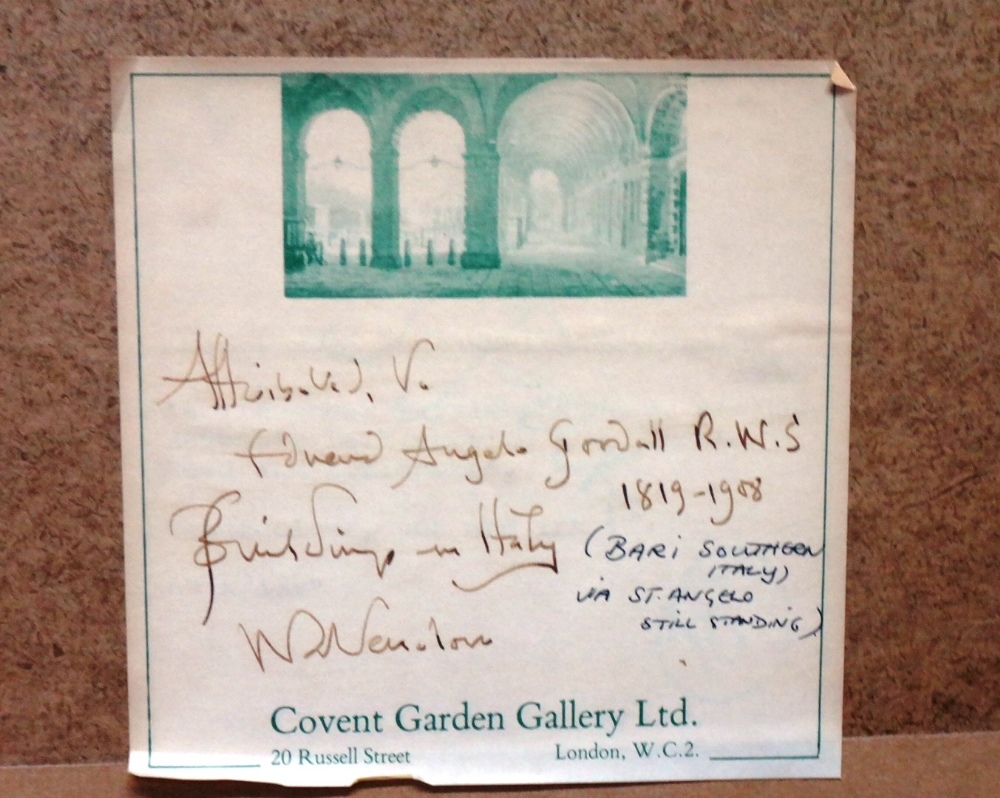 Attributed to
Edward Angelo Goodall R.W.S
1819-1908
Buildings in Italy (BARI SOUTHERN
ITALY)
VIA ST. ANGELO
STILL STANDING)
Covent Garden Gallery Ltd.
20 Russell Street London, W.C.2.